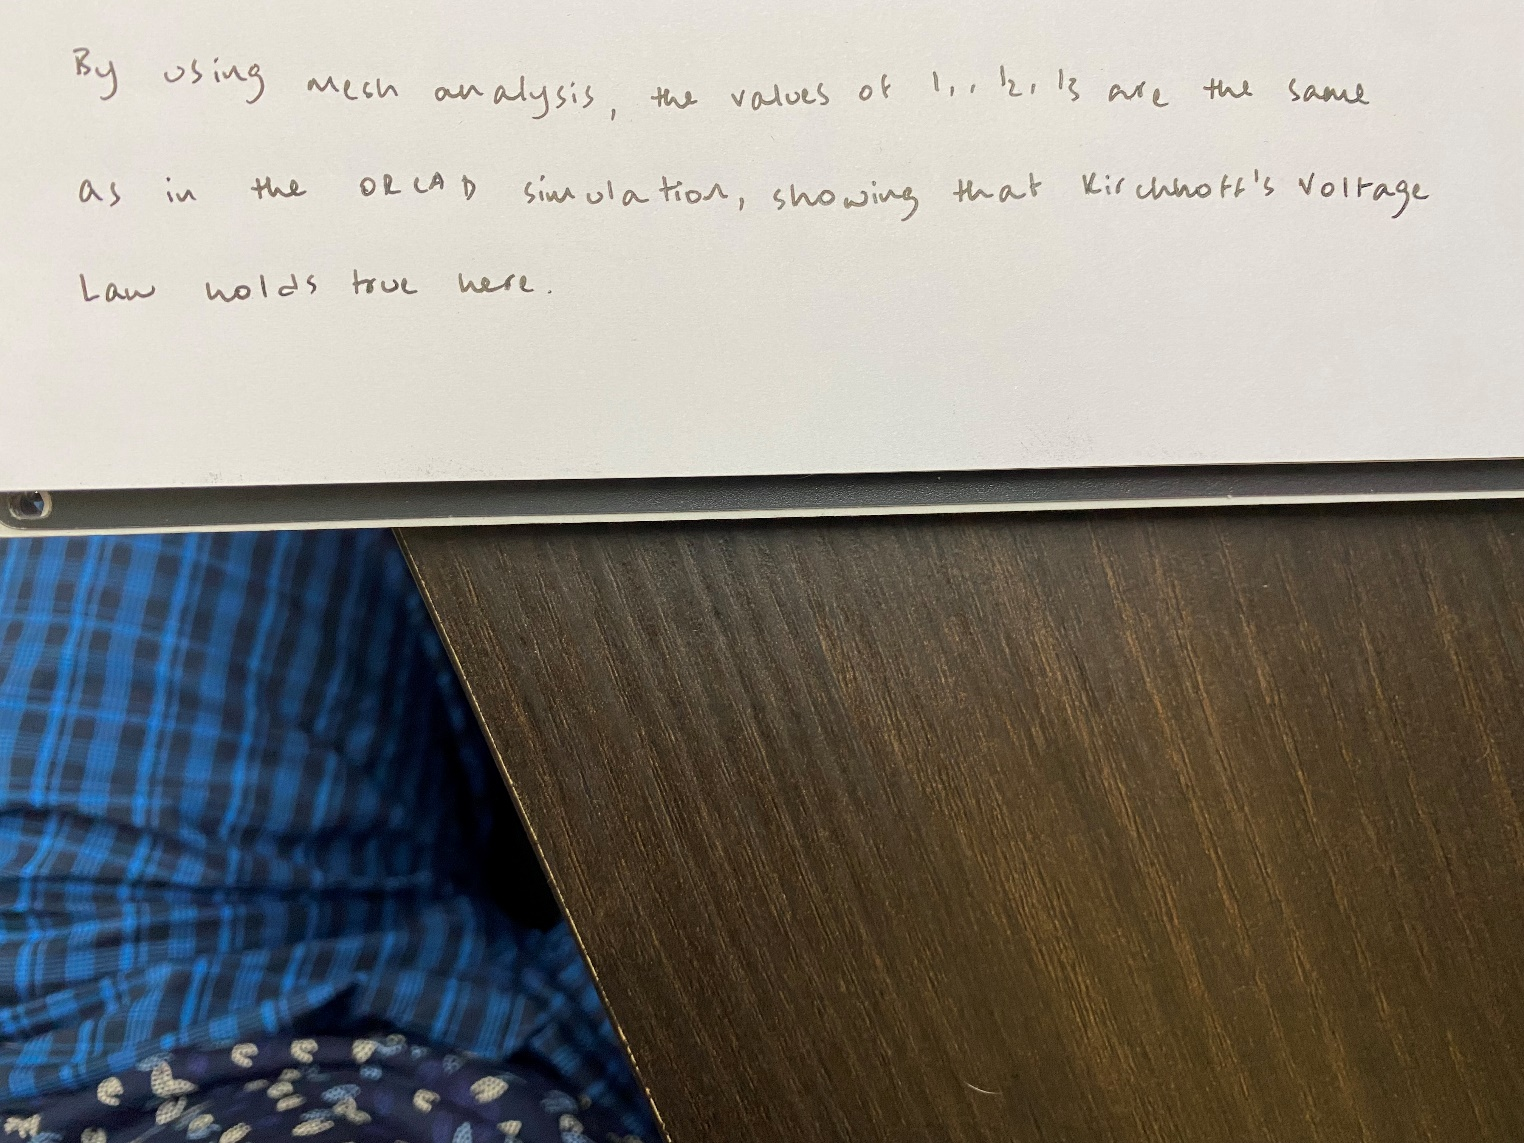 By using mesh analysis, the values of I₁, I₂, I₃ are the same
as in the ORCAD simulation, showing that Kirchhoff's Voltage
Law holds true here.